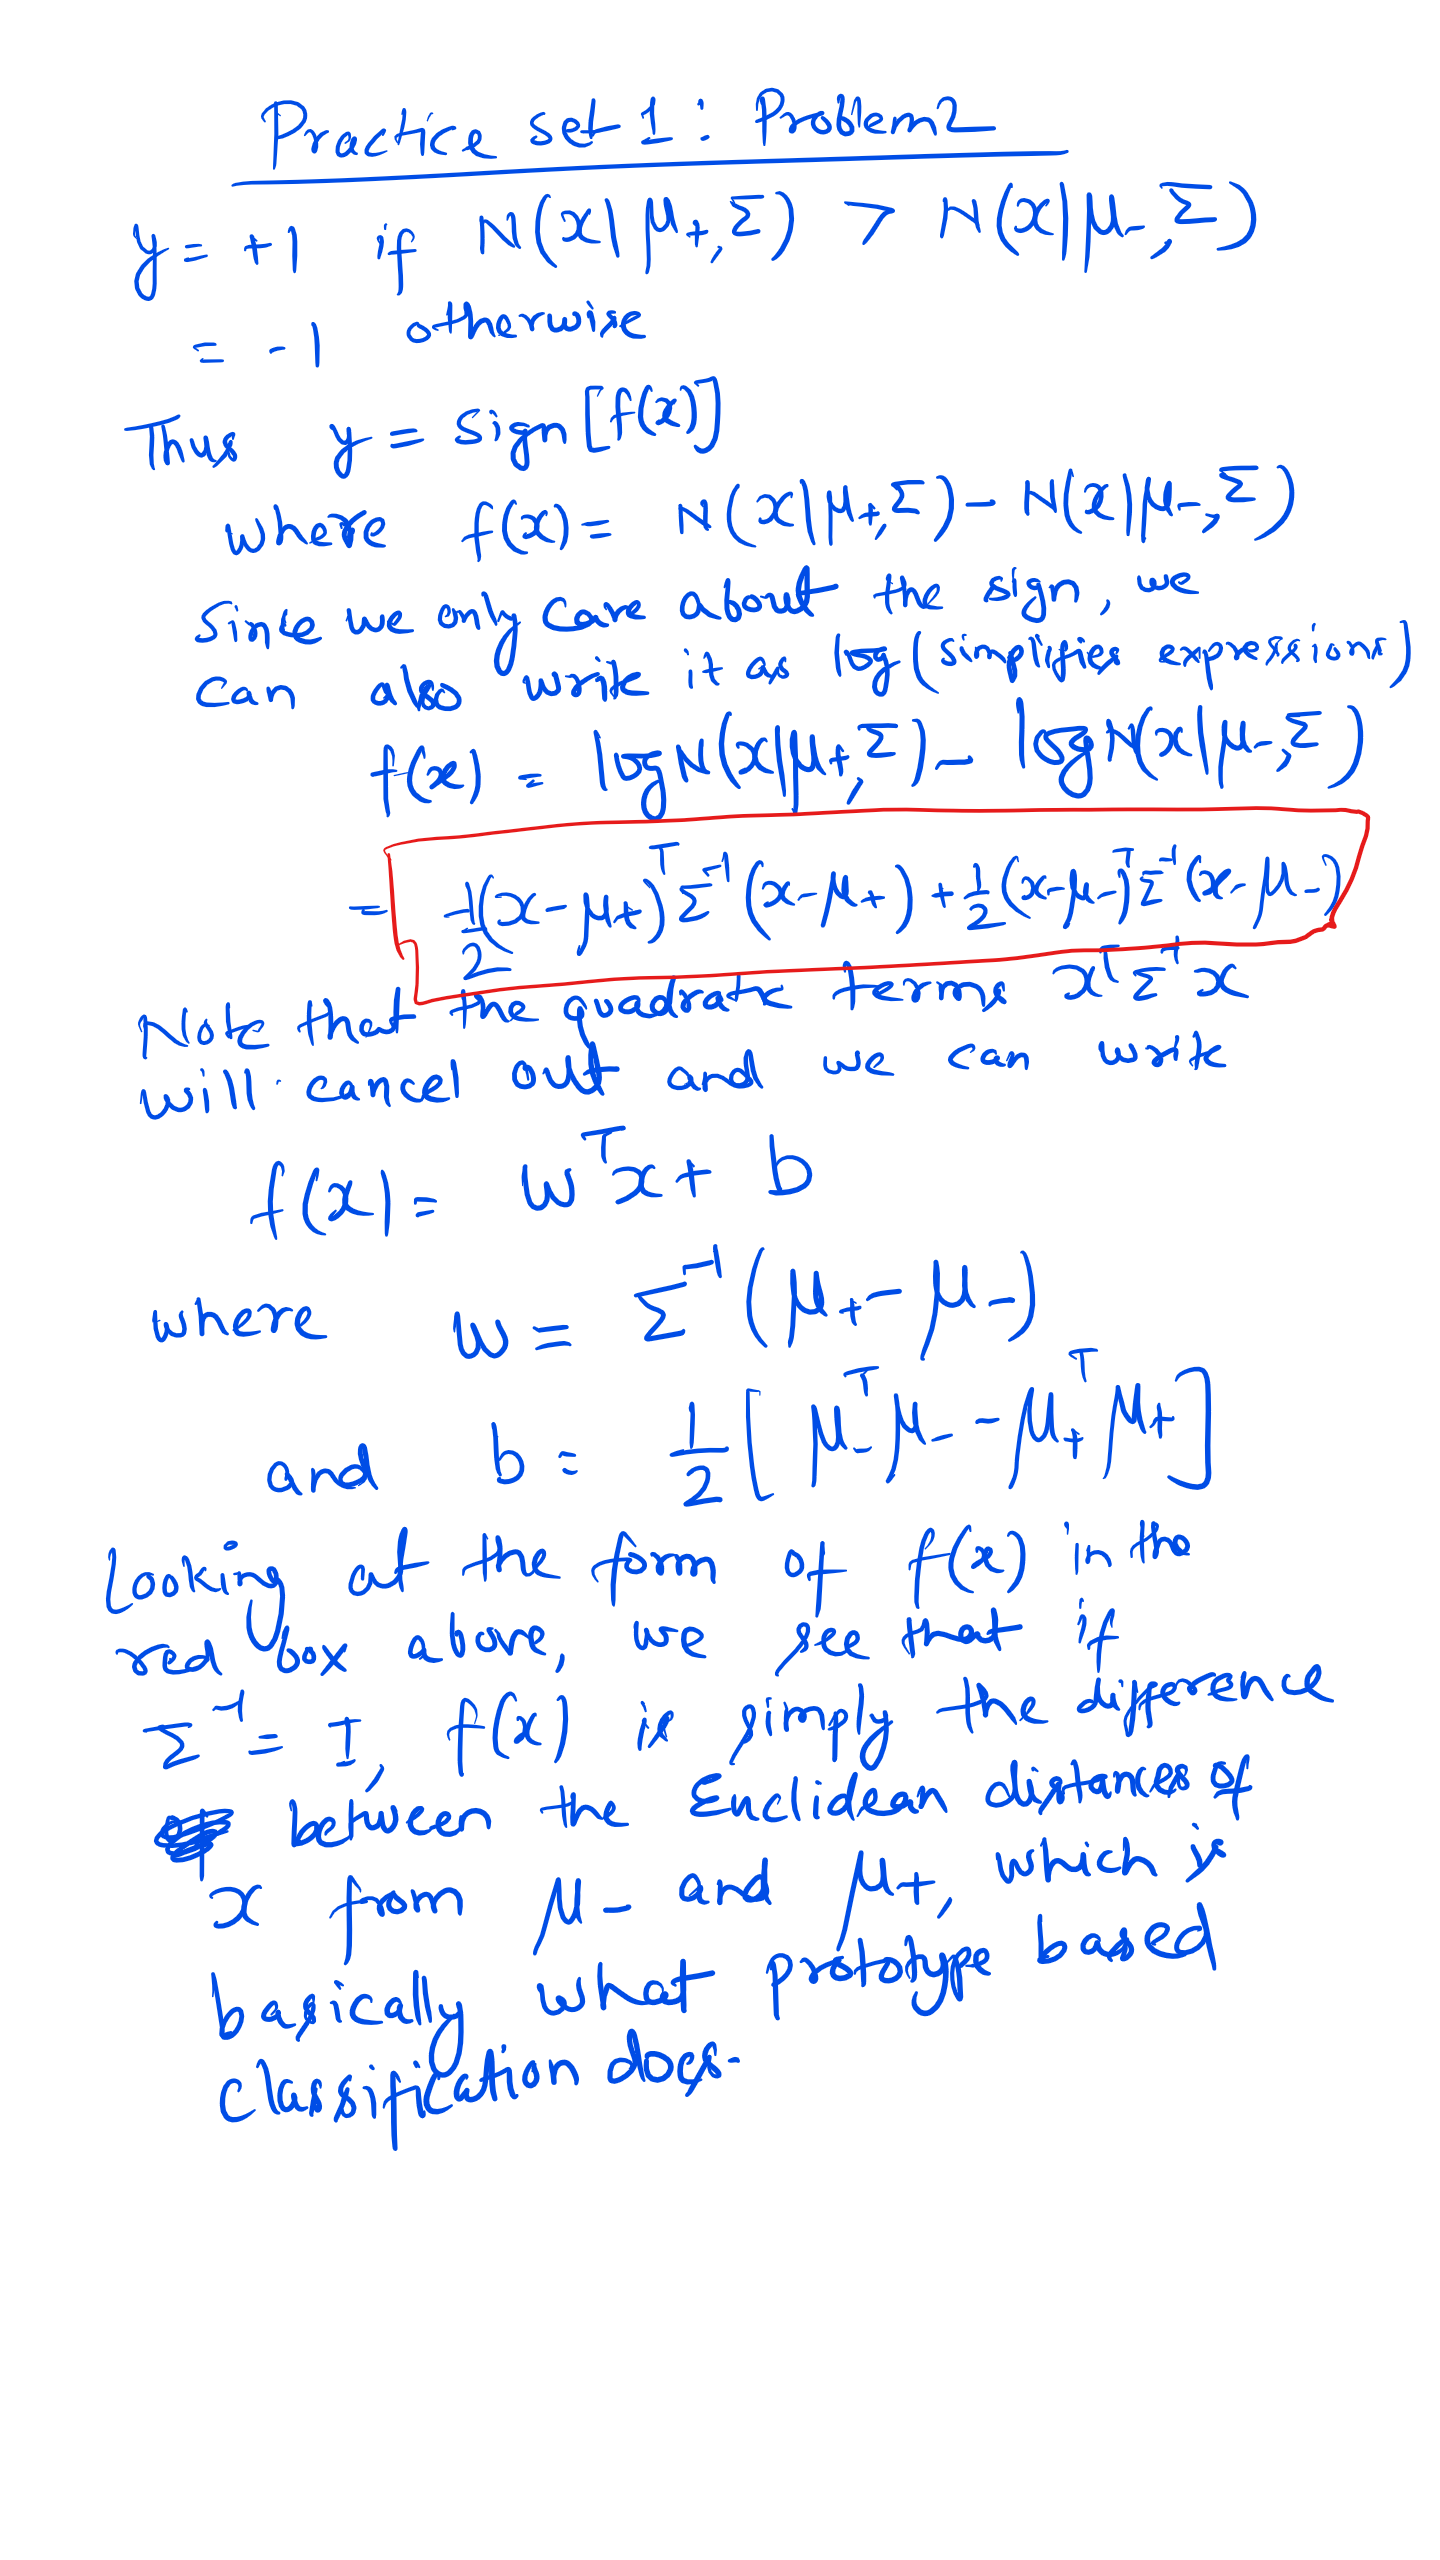 Practice set 1: Problem 2
y = +1 if N(x|μ₊,Σ) > N(x|μ₋,Σ)
= -1 otherwise
Thus y = sign[f(x)]
where f(x) = N(x|μ₊,Σ) - N(x|μ₋,Σ)
Since we only care about the sign, we
can also write it as log (simplifies expressions)
f(x) = log N(x|μ₊,Σ) - log N(x|μ₋,Σ)
= -1/2(x-μ₊)ᵀΣ⁻¹(x-μ₊) + 1/2(x-μ₋)ᵀΣ⁻¹(x-μ₋)
Note that the quadratic terms xᵀΣ⁻¹x
will cancel out and we can write
f(x) = wᵀx + b
where w = Σ⁻¹(μ₊ - μ₋)
and b = 1/2[μ₋ᵀμ₋ - μ₊ᵀμ₊]
Looking at the form of f(x) in the
red box above, we see that if
Σ⁻¹ = I, f(x) is simply the difference
between the Euclidean distances of
x from μ₋ and μ₊, which is
basically what prototype based
classification does.